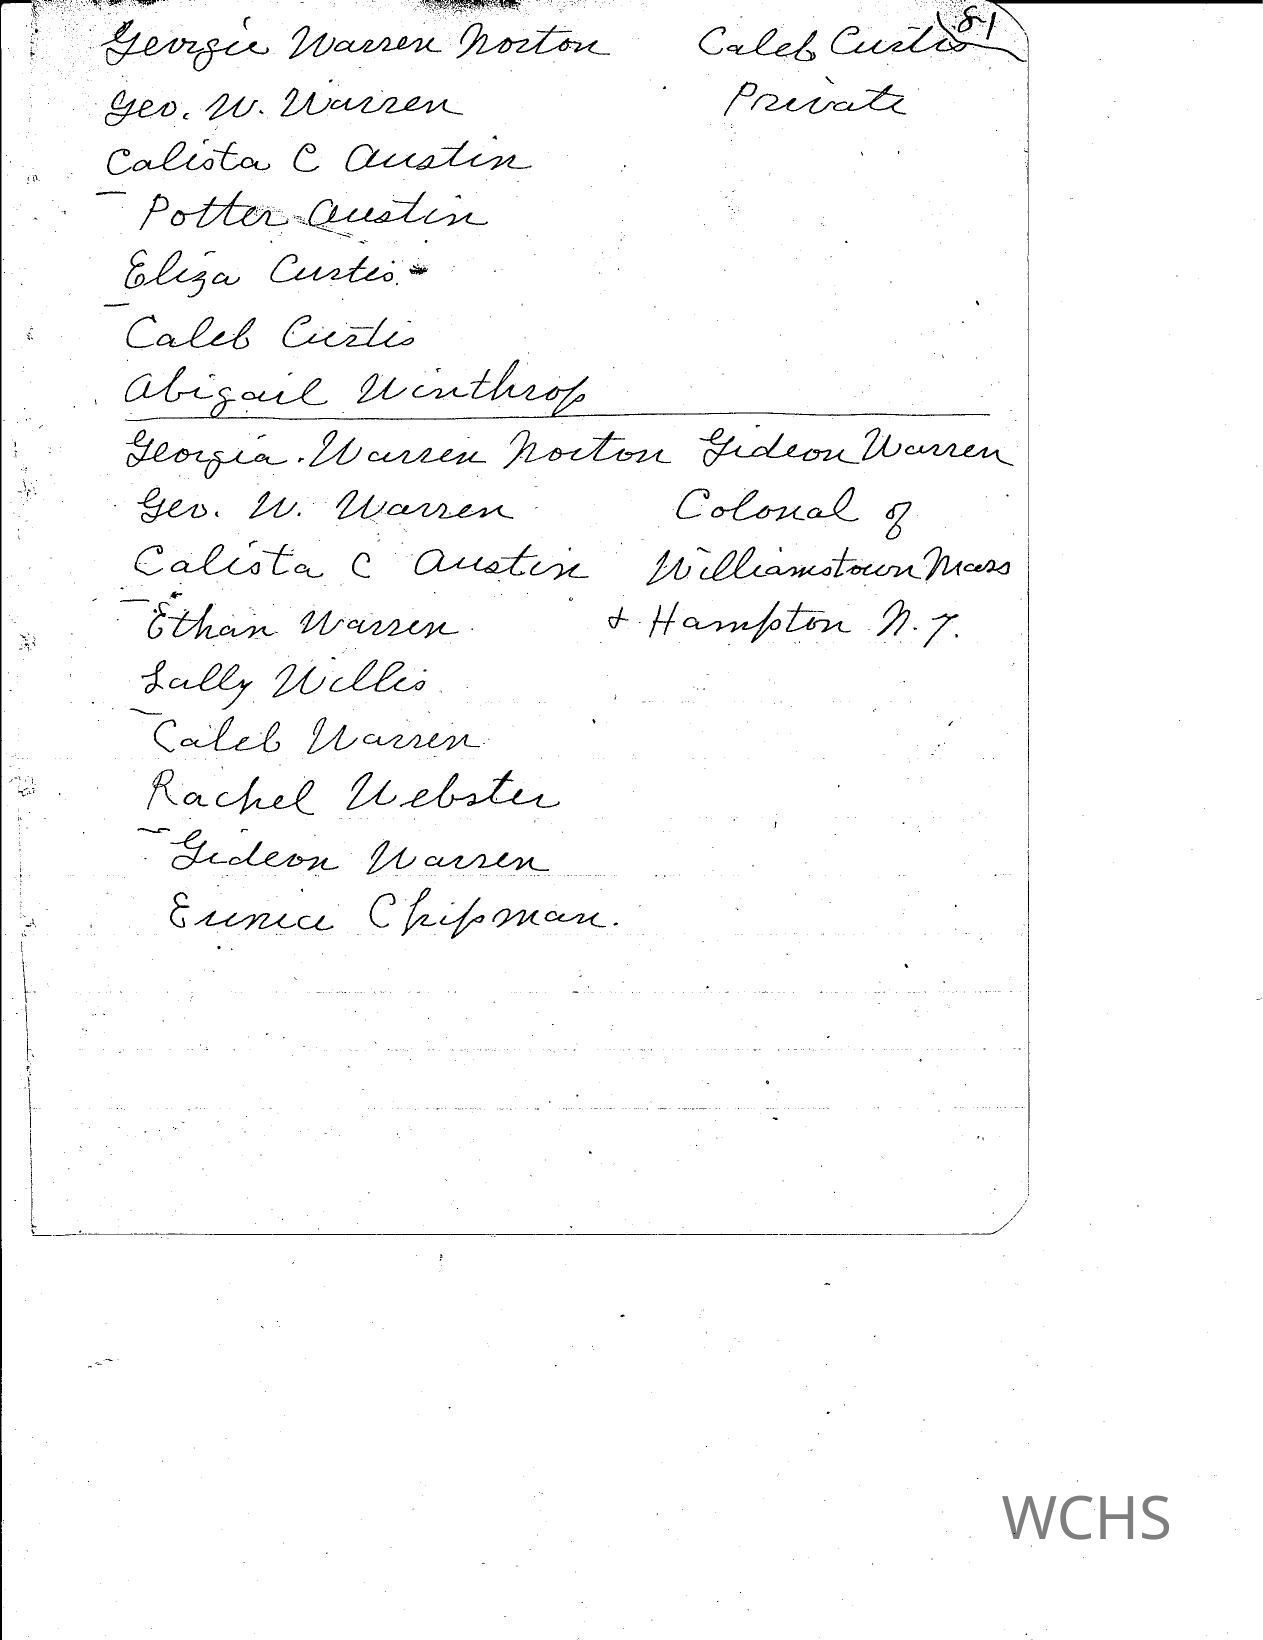 81
Georgie Warren Norton Caleb Curtis
Geo. W. Warren Private
Calista C Austin
Potter Austin
Eliza Curtis
Caleb Curtis
Abigail Winthrop
Georgia Warren Norton Gideon Warren
Geo. W. Warren Colonal of
Calista C Austin Williamstown Mass
Ethan Warren & Hampton N.Y.
Sally Willis
Caleb Warren
Rachel Webster
Gideon Warren
Eunice Chipman.
WCHS